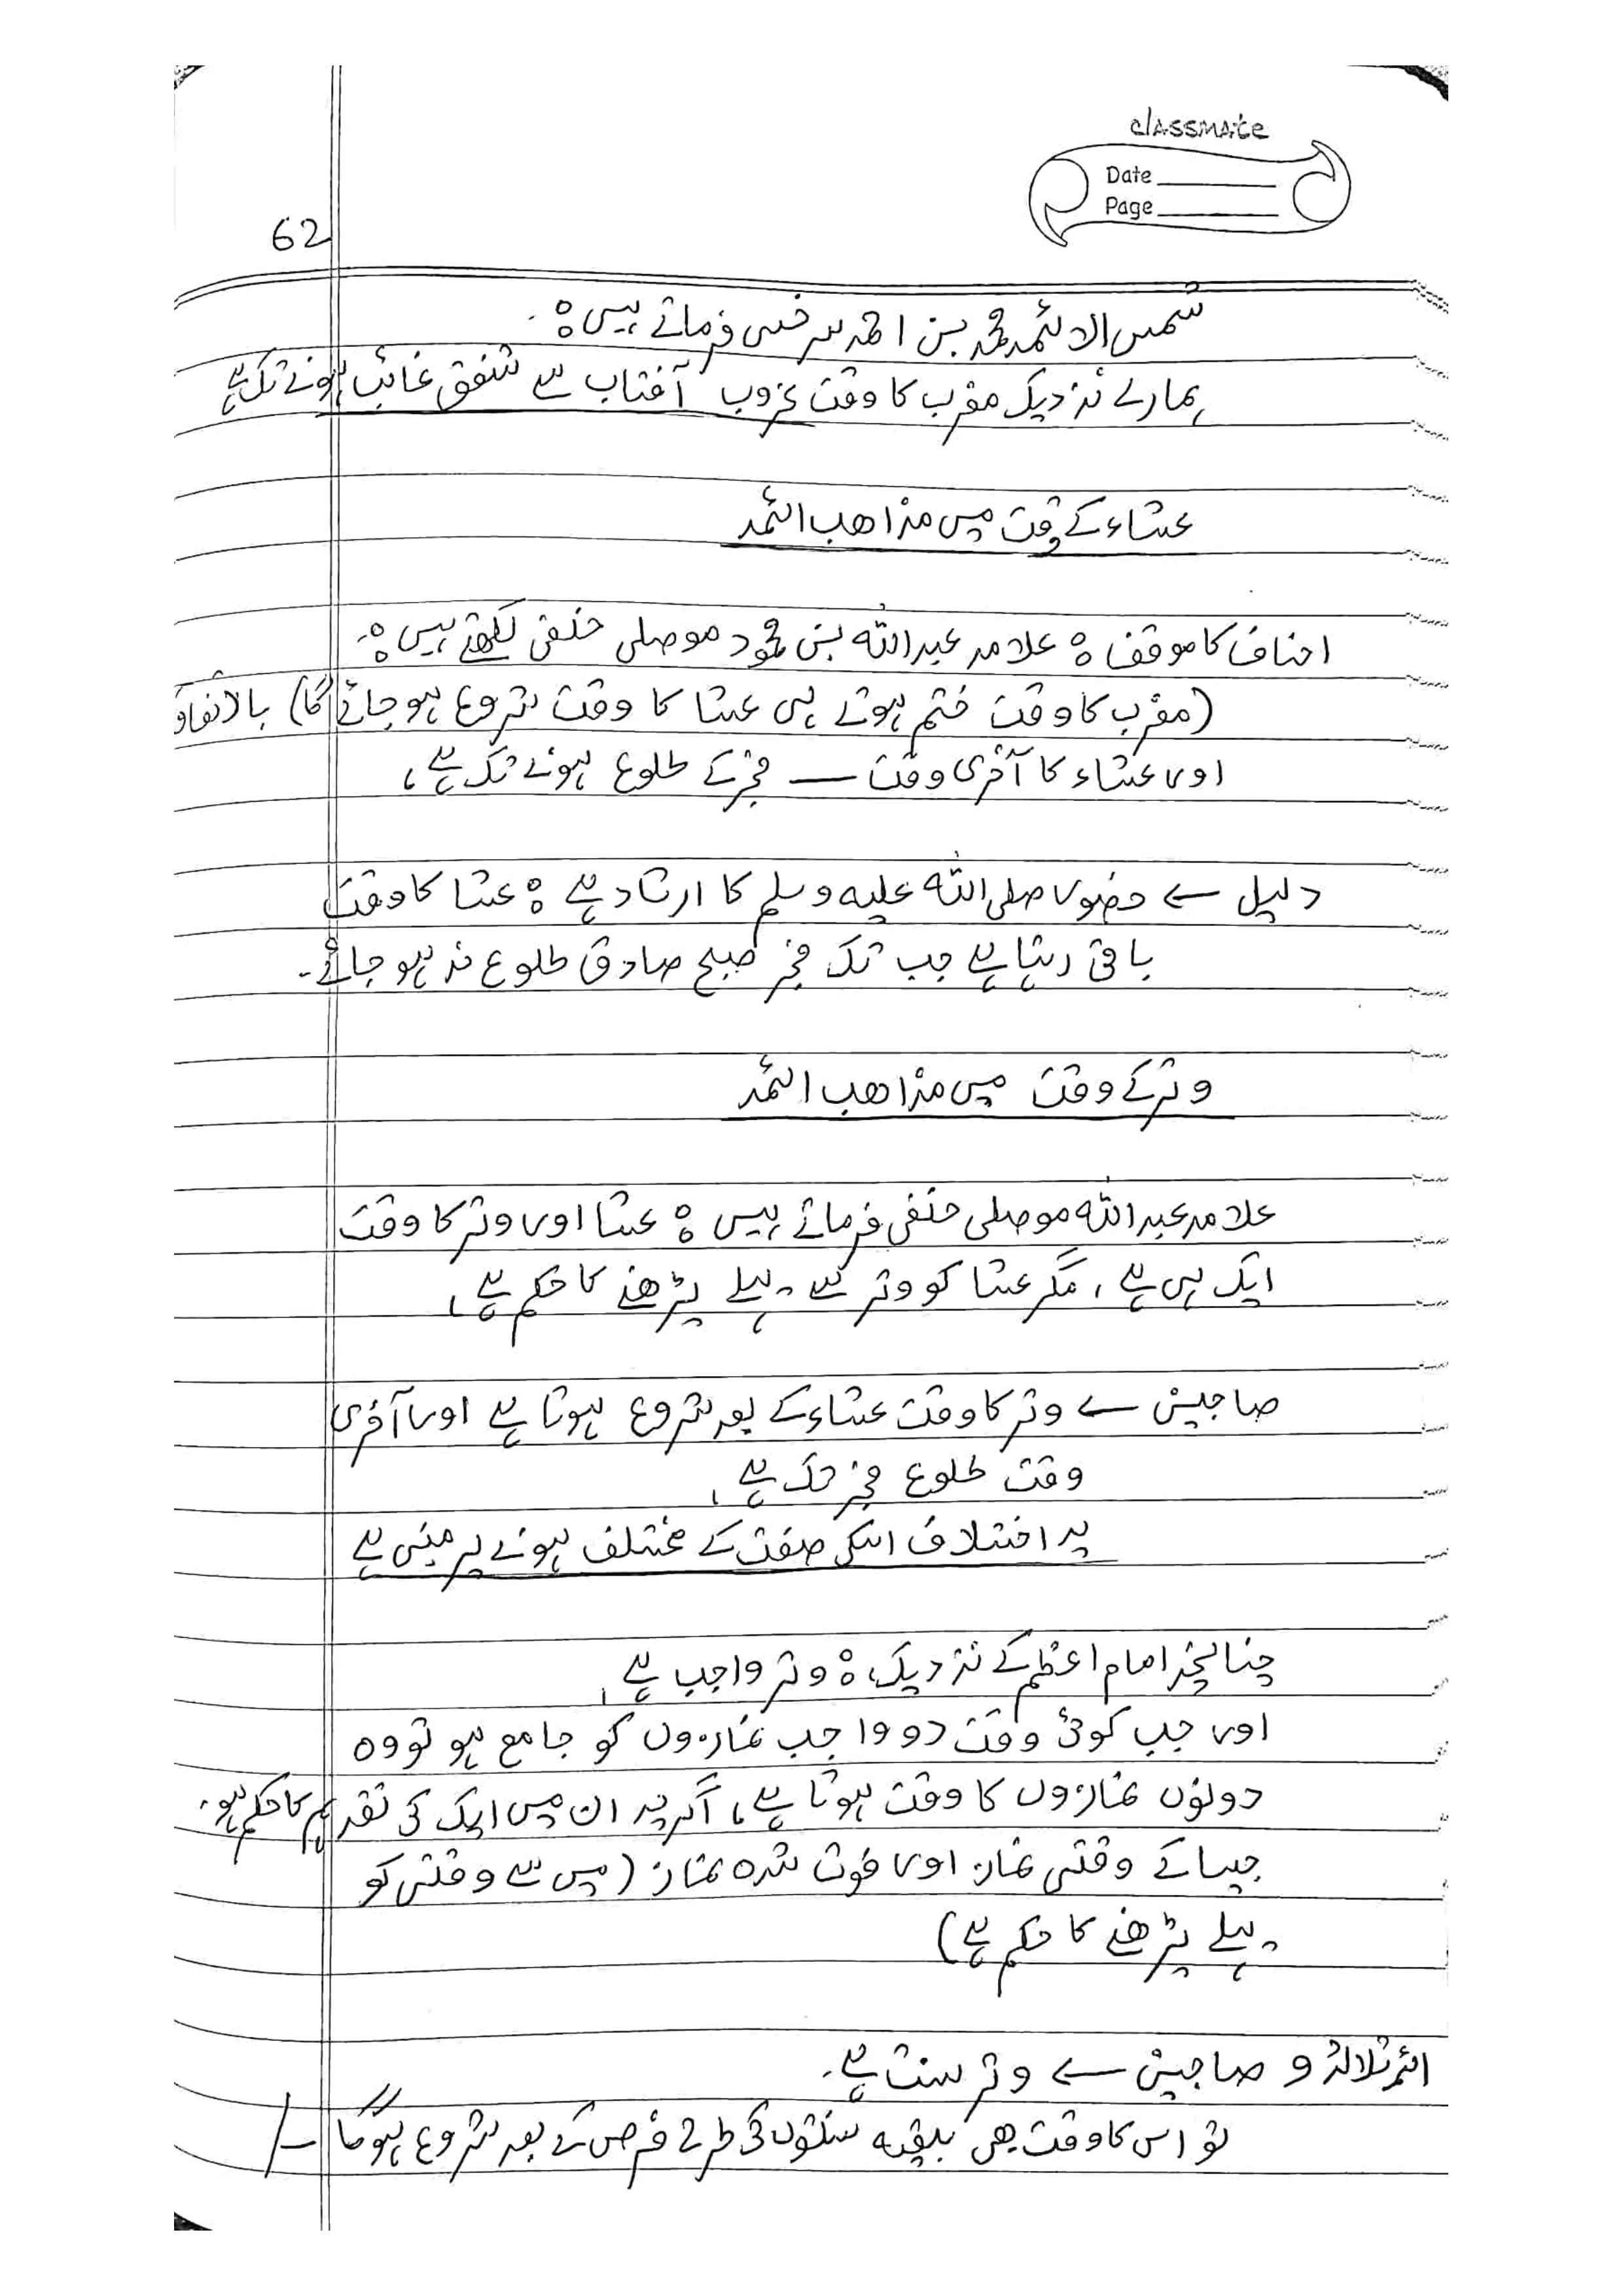 classmate
Date
Page
62
شمس الائمہ محمد بن احمد سرخسی فرماتے ہیں ٥۔
ہمارے نزدیک مغرب کا وقت غروب آفتاب سے شفق غائب ہونے تک ہے
عشاء کے وقت میں مذاھب ائمہ
احناف کا موقف ٥ علامہ عبداللہ بن محمود موصلی حنفی لکھتے ہیں ٥۔
(مغرب کا وقت ختم ہوتے ہی عشا کا وقت شروع ہو جائے گا) بالاتفاق
اور عشاء کا آخری وقت — فجر کے طلوع ہونے تک ہے،
دلیل ے حضور صلی اللہ علیہ وسلم کا ارشاد ہے ٥ عشا کا وقت
باقی رہتا ہے جب تک فجر صبح صادق طلوع نہ ہو جائے۔
وتر کے وقت میں مذاھب ائمہ
علامہ عبداللہ موصلی حنفی فرماتے ہیں ٥ عشا اور وتر کا وقت
ایک ہی ہے، مگر عشا کو وتر سے پہلے پڑھنے کا حکم ہے،
صاحبین ے وتر کا وقت عشاء کے بعد شروع ہوتا ہے اور آخری
وقت طلوع فجر تک ہے،
یہ اختلاف اسکی صفت کے مختلف ہونے پر مبنی ہے
چنانچہ امام اعظم کے نزدیک ٥ وتر واجب ہے،
اور جب کوئی وقت دو واجب نمازوں کو جامع ہو تو وہ
دونوں نمازوں کا وقت ہوتا ہے، اگرچہ ان میں ایک کی تقدیم کا حکم ہو،
جیسا کے وقتی نماز اور فوت شدہ نماز (میں سے وقتی کو
پہلے پڑھنے کا حکم ہے)
ائمہ ثلاثہ و صاحبین ے وتر سنت ہے۔
تو اس کا وقت بھی بقیہ سنتوں کی طرح فرض کے بعد شروع ہوگا —/